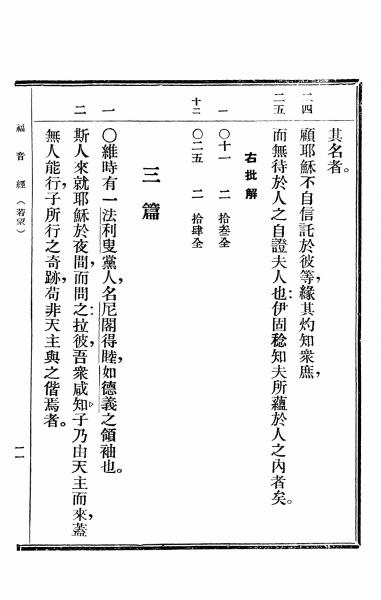 其名者。
二四 顧耶穌不自信託於彼等，緣其灼知衆庶，
二五 而無待於人之自證夫人也：伊固稔知夫所蘊於人之內者矣。
右批解
一 〇十一 二 拾叁全
十二 〇二五 二 拾肆全
三篇
一 〇維時有一法利叟黨人，名尼閣得睦，如德義之領袖也。
二 斯人來就耶穌於夜間，而問之：拉彼，吾衆咸知子乃由天主而來，蓋
無人能行子所行之奇跡，苟非天主與之偕焉者。
福音經（若望）
一一